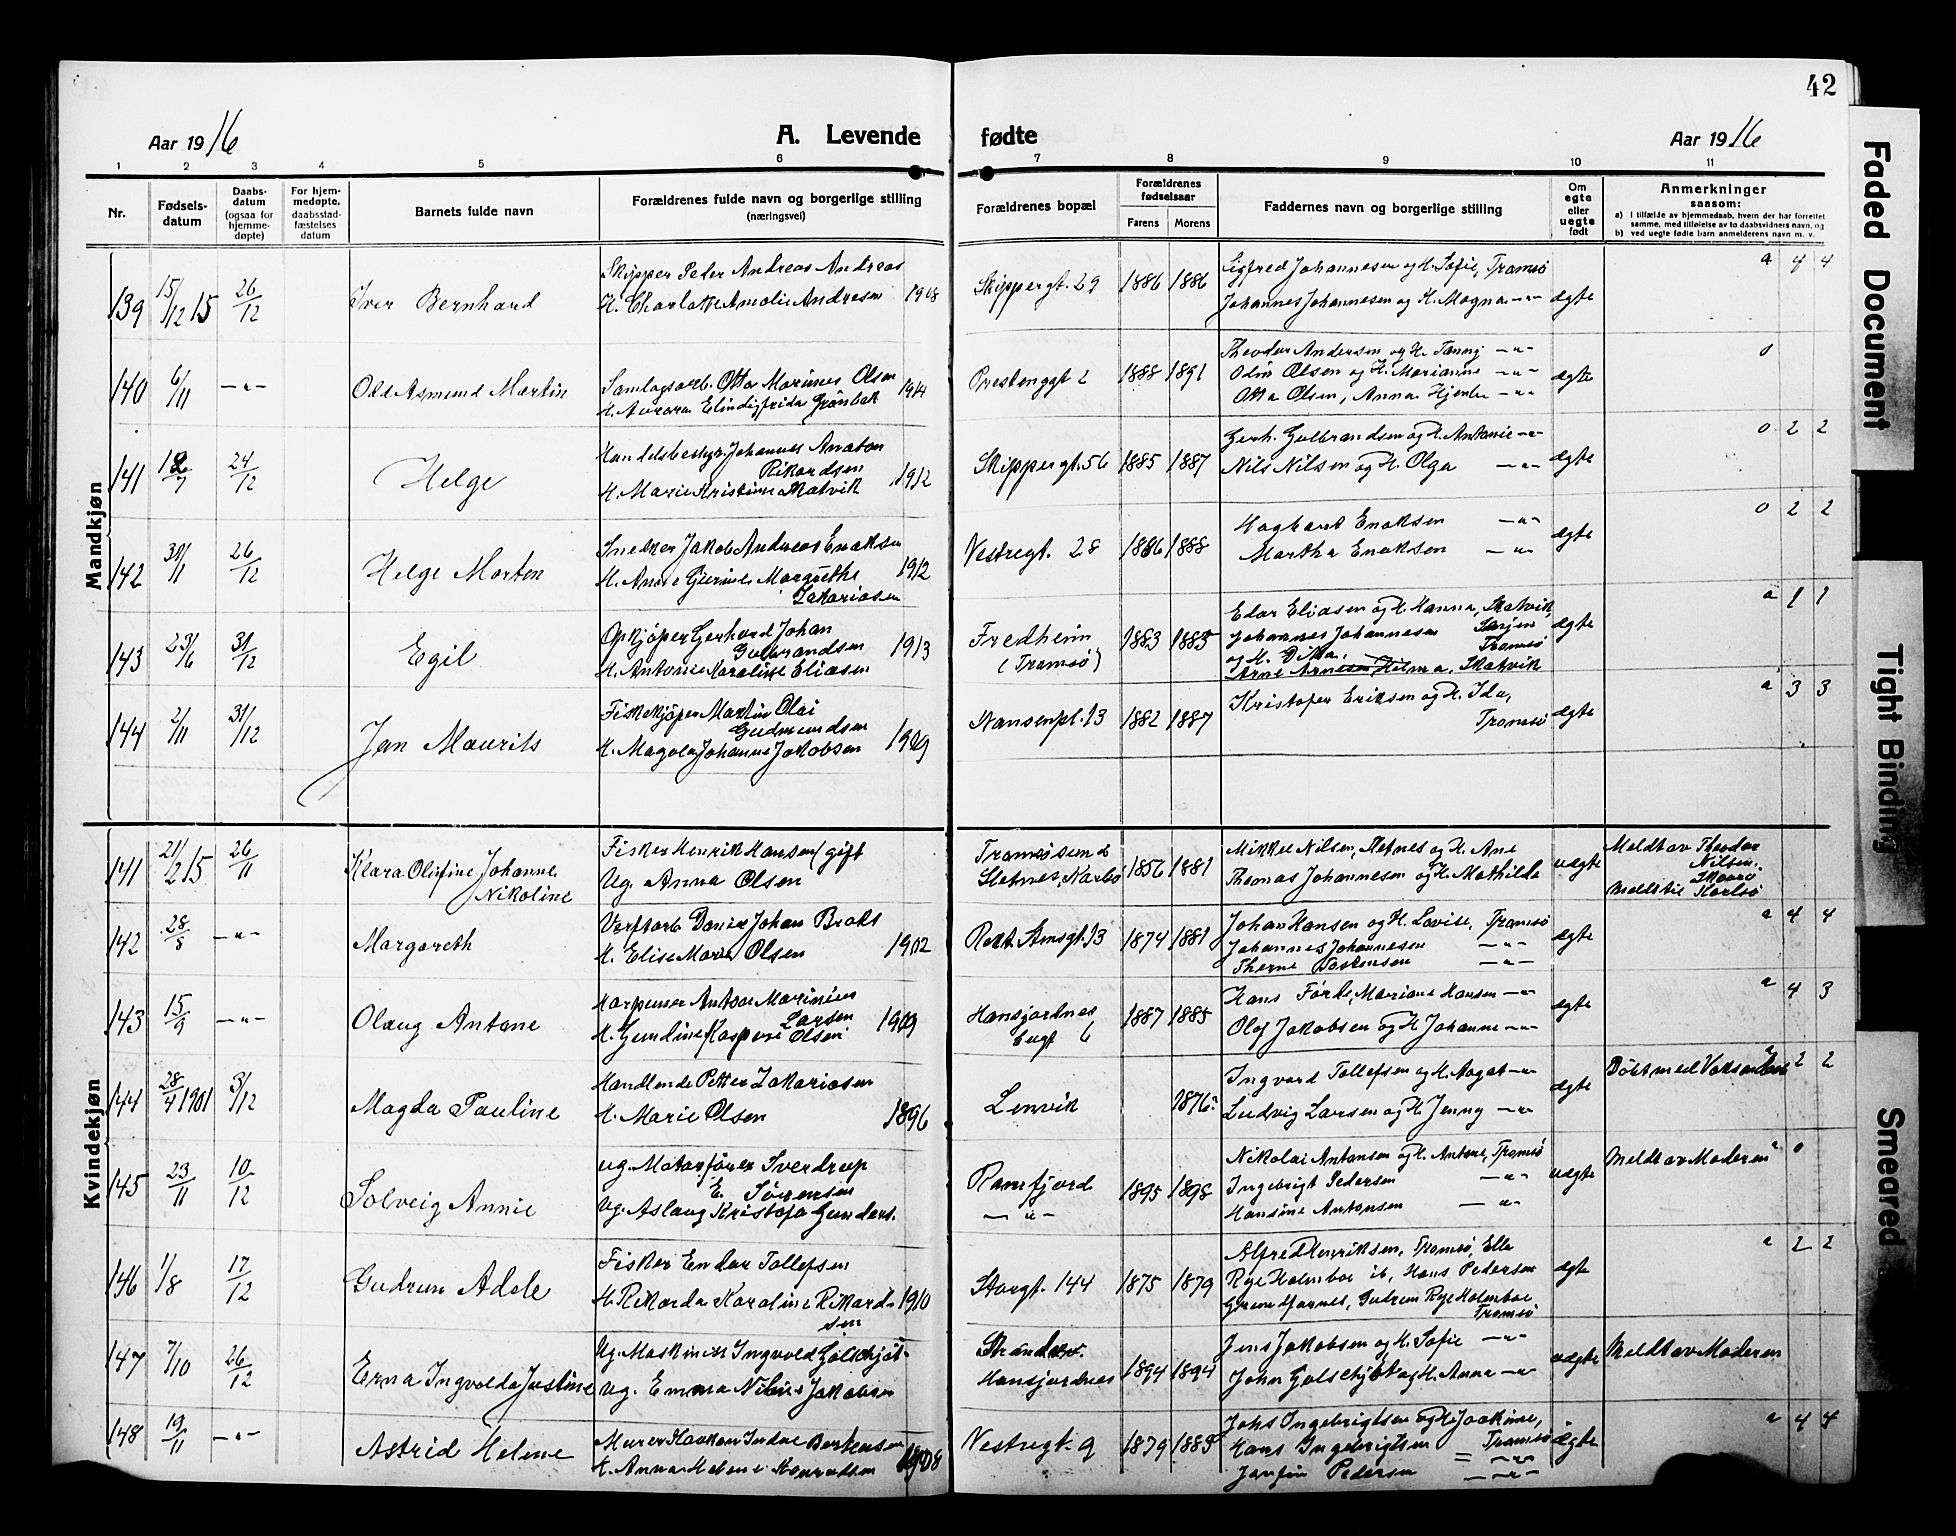 42
Aar 1916
A. Levende
fødte
Aar 1916
1 2 3 4 5 6 7 8 9 10 11
Nr.
Fødsels-
datum
Daabs-
datum
(ogsaa for
hjemme-
døpte)
For hjem-
medøpte,
daabsstad-
fæstelses
datum
Barnets fulde navn
Forældrenes fulde navn og borgerlige stilling
(næringsvei)
Forældrenes bopæl
Forældrenes
fødselsaar
Farens Morens
Faddernes navn og borgerlige stilling
Om
egte
eller
uegte
født
Anmerkninger
sansom:
a) i tilfælde av hjemmedaab, hvem der har forrettet
samme, med tilføielse av to daabsvidners navn, og
b) ved uegte fødte barn anmelderens navn m. v.
Mandkjøn
139 15/12 15 26/12 Iver Bernhard
Skipper Peder Andreas Andreas
H. Charlotte Amalie Andresen 1908
Skippergt. 29 1886 1886
Sigfred Johannesen og H. Sofie, Tromsø
Johannes Johannesen og H. Magna -"-
ægte
a 4 4
140 6/11 -"- Odd Asmund Martin
Samlagsarb. Otto Marinus Olsen
H. Aurora Elindigfrida Grønbek 1914
Prestenggt 2 1888 1891
Theodor Andersen og H. Fanny -"-
Odin Olsen og H. Marianne -"-
Otto Olsen, Anna Hjente -"-
ægte
0
141 24/12 Helge
Handelsbestyr. Johannes Anaton
Rikardsen
H. Marie Kristine Matvik 1912
Skippergt. 56 1885 1887
Gerh. Gulbrandsen og H. Antonie -"-
Nils Nilsen og H. Olga -"-
ægte
0 2 2
142 31/11 26/12 Helge Morten
Snedker Jakob Andreas Enoksen
H. Anne Gurine Margrethe
Zakariasen 1912
Vestregt. 28 1886 1888
Haghart Enoksen -"-
Martha Enoksen -"-
ægte
0 2 2
143 23/6 31/12 Egil
Opkjøper Gerhard Johan
Gulbrandsen
H. Antonie Karoline Eliasen 1913
Fredheim
(Tromsø) 1883 1885
Edor Eliasen og H. Hanna, Skatvik
Johannes Johannesen
og H. Tromsø
Arne Arnesen Hilma, Skatvik
ægte
a 1 1
144 2/11 31/12 Jan Maurits
Fiskekjøper Martin Olai
Gudmundsen
H. Magola Johanne Jakobsen 1909
Nansenpl. 13 1882 1887
Kristofer Eriksen og H. Ida,
Tromsø
ægte
a 3 3
Kvindekjøn
141 21/2 15 26/11 Klara Olufine Johanne
Nikoline
Fisker Henrik Hansen (gift
Ug. Anna Olsen
Tromsøsund
Sletnes, Karlsø 1856 1881
Mikkel Nilsen, Sletnes og H. Ane
Thomas Johannesen og H. Mathilde
uægte
Meldt av Theodor
Nilsen.
Meldt til Karlsø
142 28/8 -"- Margareth
Verftarb Daniel Johan Broks
H. Elise Marie Olsen 1902
Rekt. Stensgt. 13 1874 1881
Johan Hansen og H. Lovise, Tromsø
Johannes Johannesen -"-
Therne Torstensen -"-
ægte
a 4 4
143 15/9 -"- Olaug Antone
Harpuner Anton Marinius
Larsen
H. Gundine Kaspara Olsen 1909
Hansjordnes
bugt 6 1887 1885
Hans Førte, Mariane Hansen -"-
Olaf Jakobsen og H. Johanne -"-
ægte
a 4 3
144 28/4 1901 3/12 Magda Pauline
Handlende Petter Zakariasen
H. Marie Olsen 1896
Lenvik 1876
Ingvard Tollefsen og H. Aagot -"-
Ludvig Larsen og H. Jenny -"-
ægte
Døbt med Voksendaab
2 2
145 23/11 10/12 Solveig Annie
Ug. Motorfører Sverdrup
E. Sørensen
Ug. Aslaug Kristofa Gunders.
Ramfjord
-"- 1895 1898
Nikolai Antonsen og H. Antone, Tromsø
Ingebrigt Pedersen -"-
Hansine Antonsen -"-
uægte
Meldt av Moderen
0
146 1/8 17/12 Gudrun Adele
Fisker Endor Tollefsen
H. Rikarda Karoline Rikard-
sen 1910
Storgt. 144 1875 1879
Alfred Henriksen, Tromsø, Ella
Rye Holmboe ib, Hans Pedersen
Grundfarnes, Gudrun Rye Holmboe
Tromsø
ægte
a 2 2
147 7/10 26/12 Erna Ingvolda Justine
Ug. Maskinist Ingvold Golschjøt
Ug. Emma Niline Jakobsen
Strandv.
Hansjordnes 1894 1894
Jens Jakobsen og H. Sofie -"-
John Golschjøt og H. Anna -"-
uægte
Meldt av Moderen
148 19/11 -"- Astrid Helene
Murer Haakon Indne Berthensen
H. Anna Helene Konradsen 1908
Vestregt. 9 1879 1885
Johs Ingebrigtsen og H. Joakime,
Hans Ingebrigtsen Tromsø
Jenfin Pedersen -"-
ægte
a 4 4
Faded Document
Tight Binding
Smeared